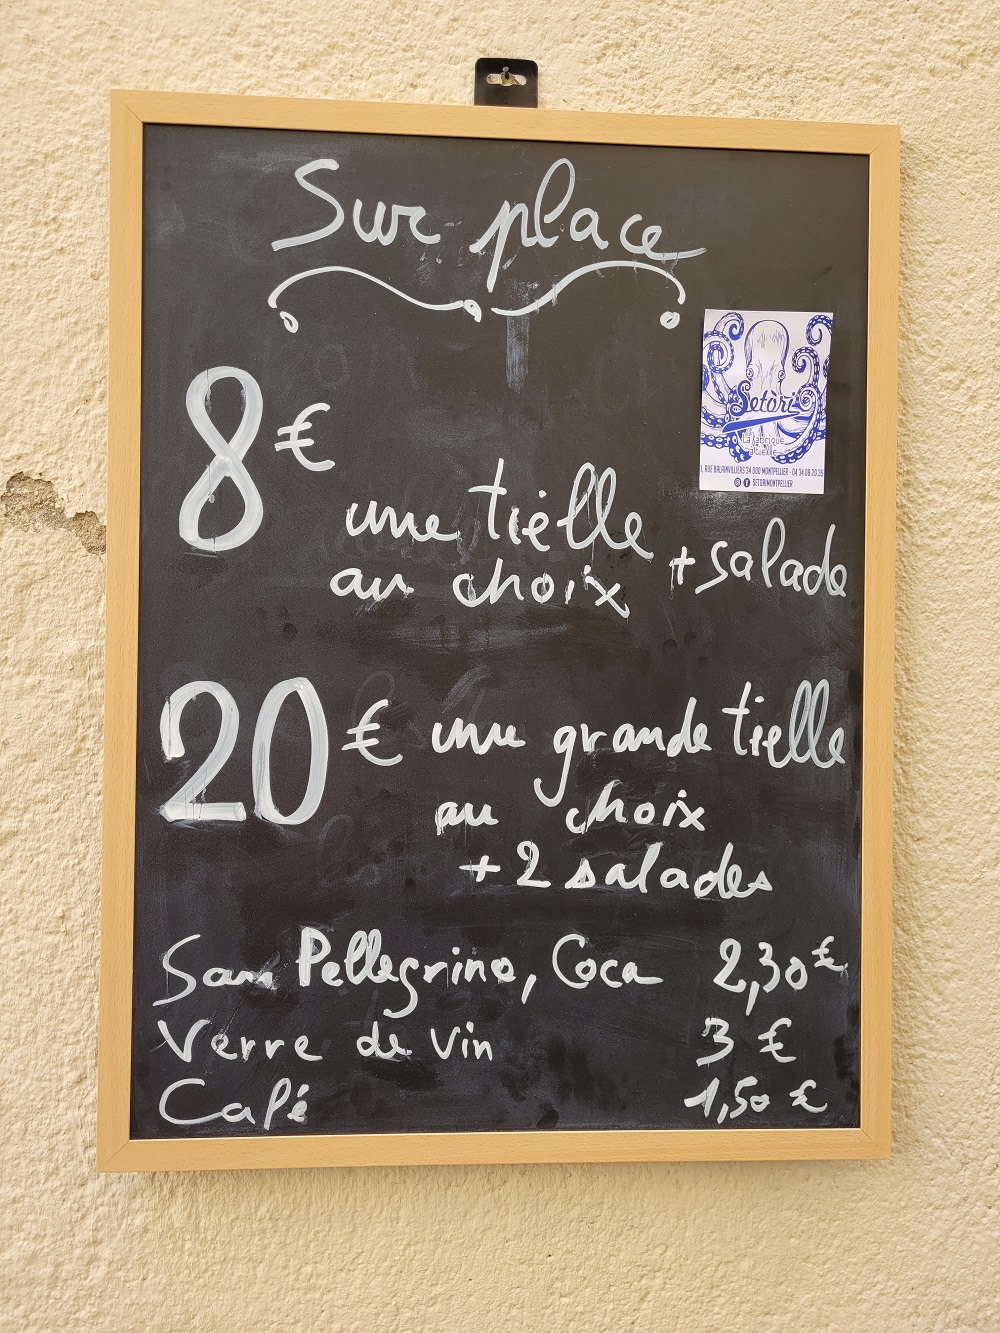 Sur place
8€
une tielle
au choix
+ salade
20€
une grande tielle
au choix
+ 2 salades
San Pellegrino, Coca 2,30€
Verre de vin 3€
Café 1,50€
Setòri
La fabrique
à tielle
1, RUE BALAINVILLIERS 34 000 MONTPELLIER - 04 34 08 20 35
SETORIMONTPELLIER